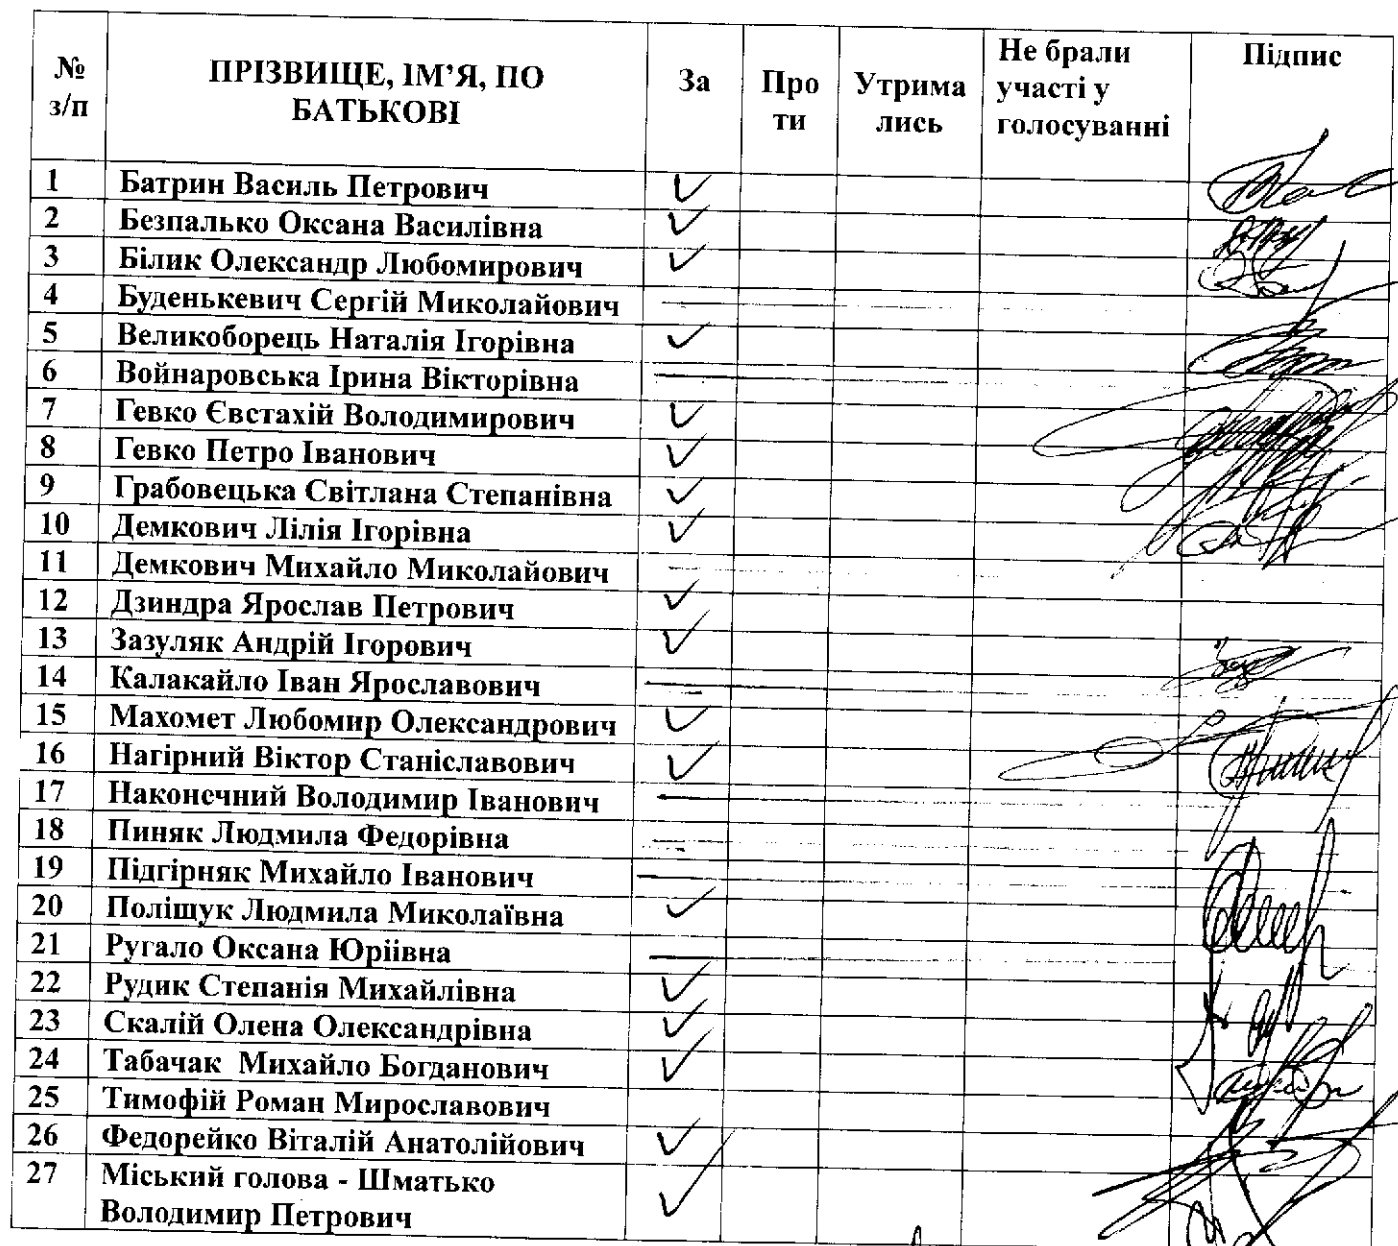 № з/п ПРІЗВИЩЕ, ІМ’Я, ПО БАТЬКОВІ За Про ти Утрима лись Не брали участі у голосуванні Підпис
1 Батрин Василь Петрович ✓
2 Безпалько Оксана Василівна ✓
3 Білик Олександр Любомирович ✓
4 Буденькевич Сергій Миколайович
5 Великоборець Наталія Ігорівна ✓
6 Войнаровська Ірина Вікторівна
7 Гевко Євстахій Володимирович ✓
8 Гевко Петро Іванович ✓
9 Грабовецька Світлана Степанівна ✓
10 Демкович Лілія Ігорівна ✓
11 Демкович Михайло Миколайович
12 Дзиндра Ярослав Петрович ✓
13 Зазуляк Андрій Ігорович ✓
14 Калакайло Іван Ярославович
15 Махомет Любомир Олександрович ✓
16 Нагірний Віктор Станіславович ✓
17 Наконечний Володимир Іванович
18 Пиняк Людмила Федорівна
19 Підгірняк Михайло Іванович
20 Поліщук Людмила Миколаївна ✓
21 Ругало Оксана Юріївна
22 Рудик Степанія Михайлівна ✓
23 Скалій Олена Олександрівна ✓
24 Табачак Михайло Богданович ✓
25 Тимофій Роман Мирославович
26 Федорейко Віталій Анатолійович ✓
27 Міський голова - Шматько
Володимир Петрович ✓